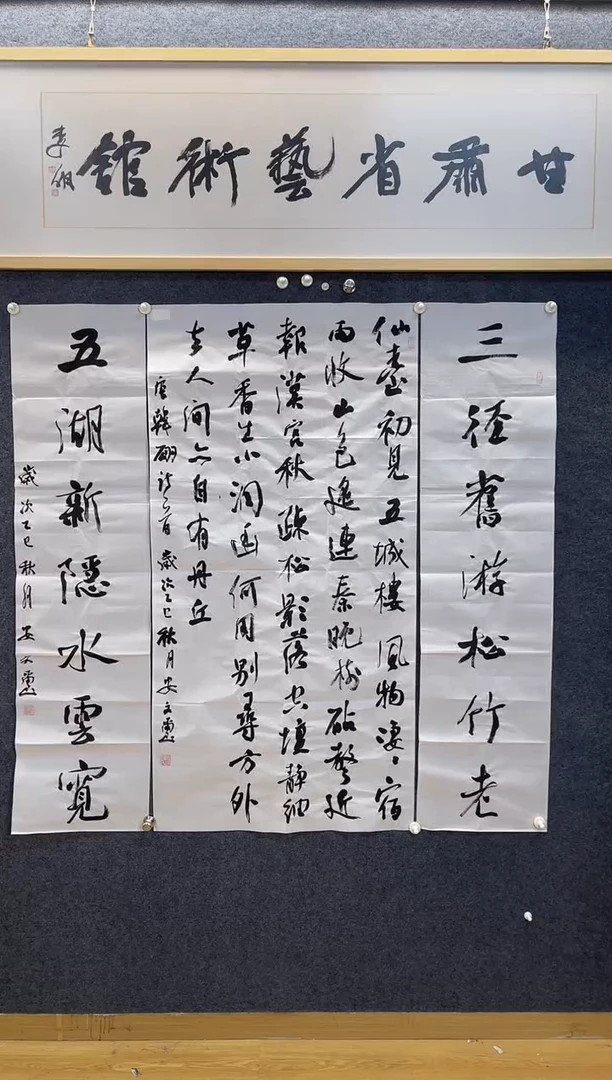 甘肅省藝術館
三径舊游松竹老
仙臺初見五城樓風物淒〻宿
雨收山色遙連秦晚樹砧聲近
報漢宮秋疎松影落空壇静細
草香生小洞幽何用别尋方外
去人间亦自有丹丘
唐韓翃詩一首 歲次乙巳秋月安文
五湖新隱水雲寬
歲次乙巳秋月 安文